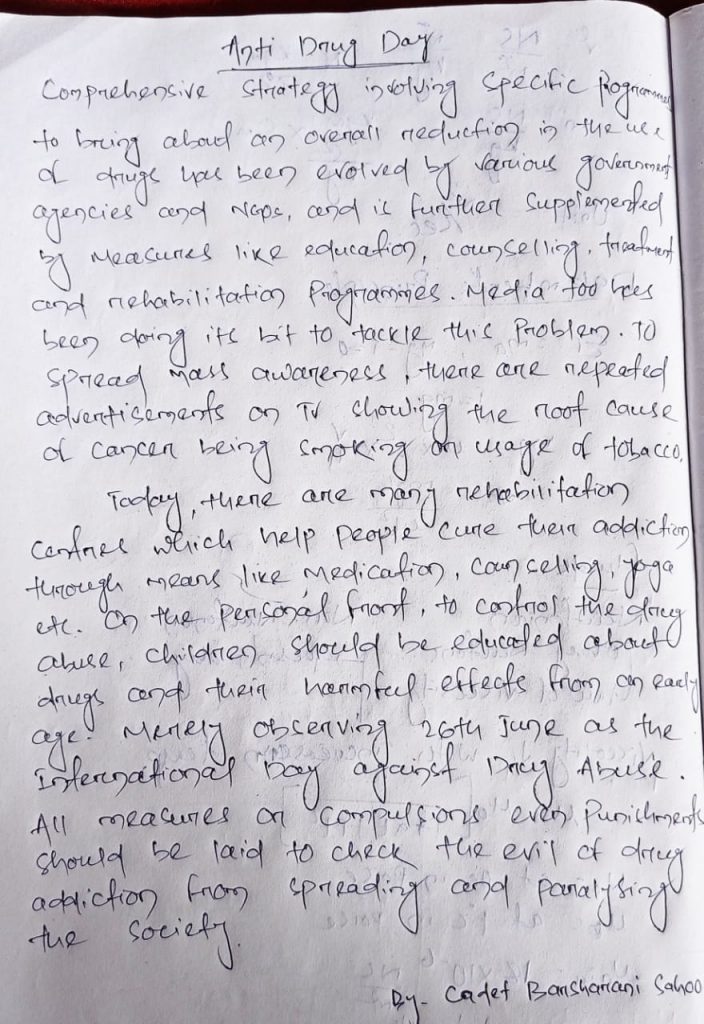 Anti Drug Day
Comprehensive strategy involving specific Programmes
to bring about an overall reduction in the use
of drugs has been evolved by various government
agencies and NGOs, and is further supplemented
by measures like education, counselling, treatment
and rehabilitation Programmes. Media too has
been doing its bit to tackle this Problem. To
spread mass awareness, there are repeated
advertisements on TV showing the root cause
of cancer being smoking or usage of tobacco.
Today, there are many rehabilitation
centres which help people cure their addiction
through means like medication, counselling, yoga
etc. On the personal front, to control the drug
abuse, children should be educated about
drugs and their harmful effects from an early
age. Merely observing 26th June as the
International Day against Drug Abuse.
All measures or compulsions even Punishments
should be laid to check the evil of drug
addiction from spreading and paralysing
the society.
By- Cadet Barsharani Sahoo